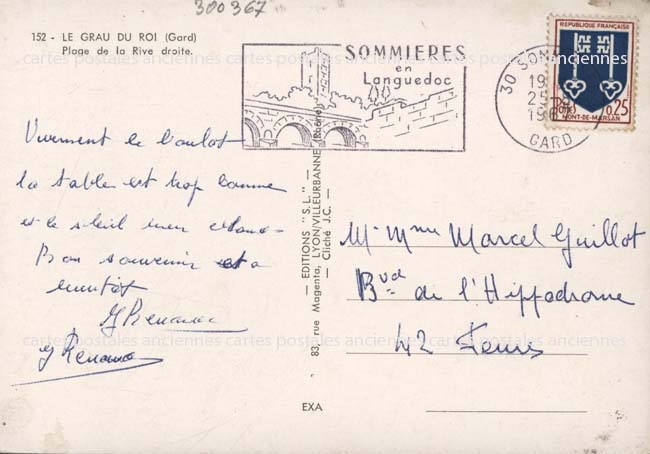 300367
152 - LE GRAU DU ROI (Gard)
Plage de la Rive droite.
SOMMIERES
en
Languedoc
30 SOM
19
25
196
GARD
REPUBLIQUE FRANÇAISE
0,25
MONT-DE-MARSAN
Vivement le boulot
la table est trop bonne
et le soleil
Bon souvenir et a
bientôt
— EDITIONS "S.L." —
83, rue Magenta, LYON/VILLEURBANNE (Rhône)
— Cliché J.C. —
Mr Mme Marcel Guillot
Bvd de l'Hippodrome
42 Feurs
cartes postales anciennes cartes postales anciennes cartes postales anciennes
cartes postales anciennes cartes postales anciennes cartes postales anciennes
EXA